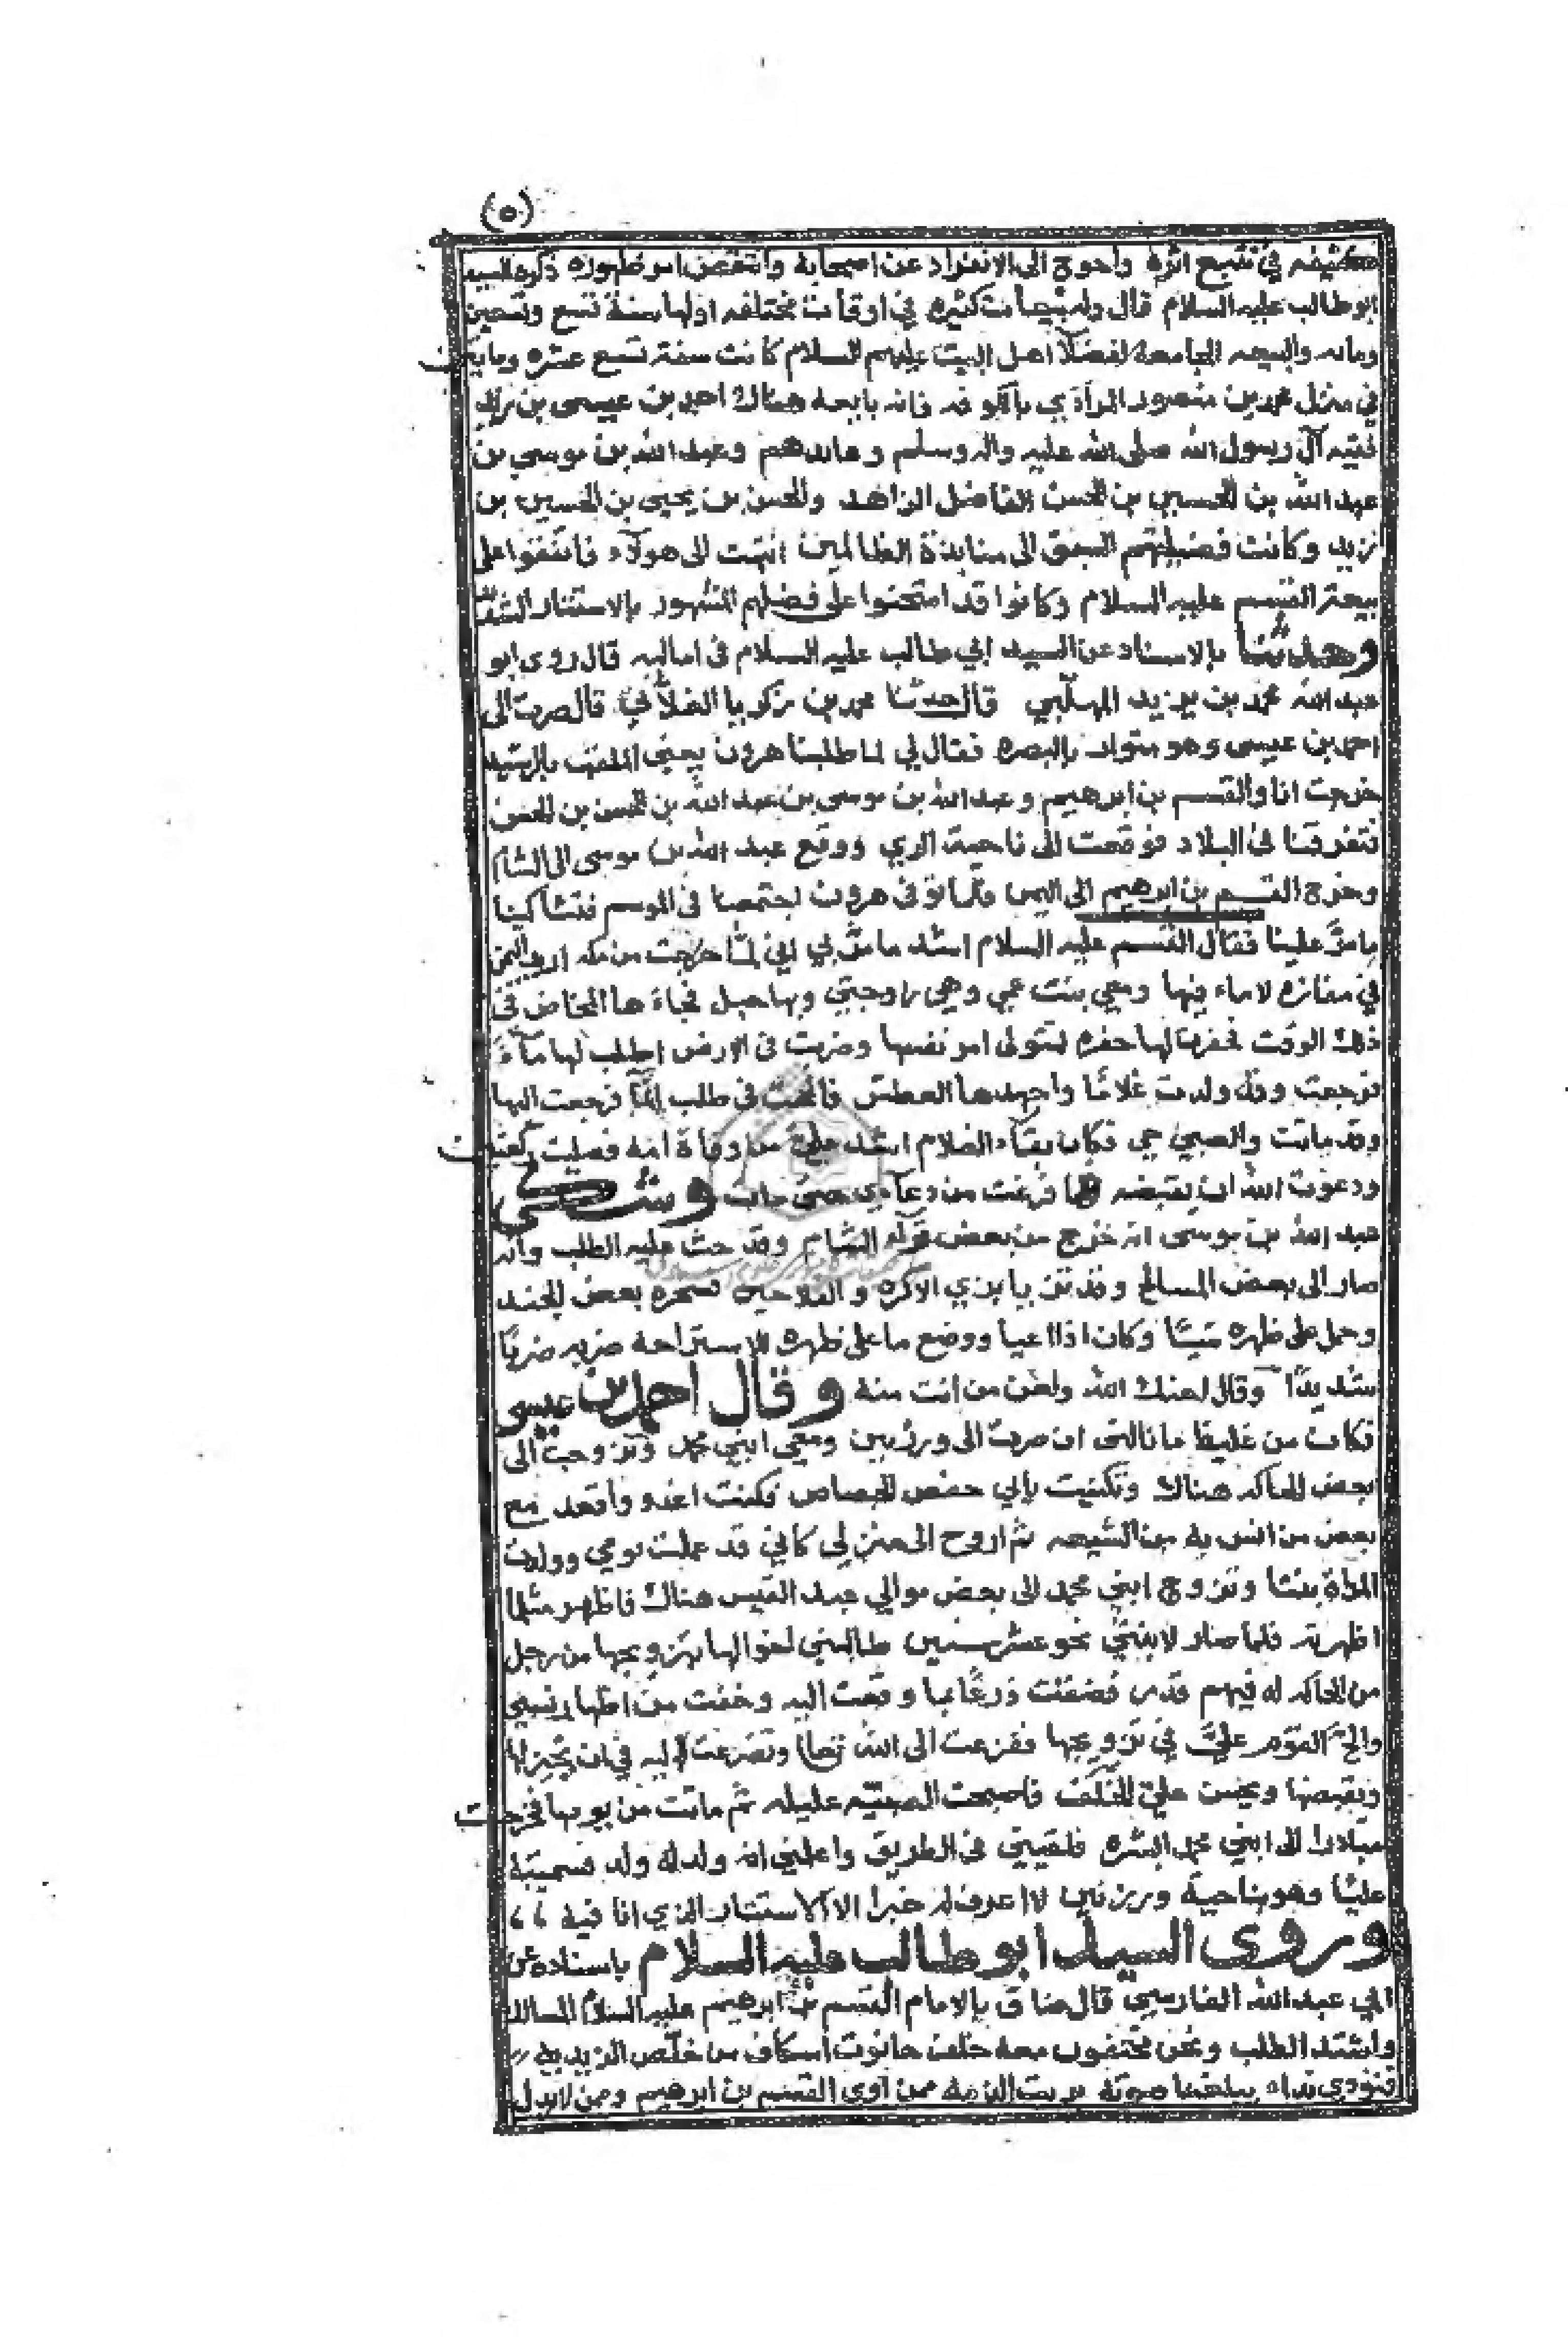 (٥)
كثيفه في تتبع اثره واحوج الى الانفراد عن اصحابة وانتقض امر ظهوره ذكره السيد
ابو طالب عليه السلام قال وله بيعات كثيره في اوقات مختلفه اولها سنة تسع وتسعين
ومايه والبيعه الجامعة لفضلآ اهل البيت عليهم السلام كانت سنة تسع عشره ومايتين
في منزل محمد بن منصور المرادي بالكوفه فانه بايعه هناك احمد بن عيسى بن زيد
فقيه آل رسول الله صلى الله عليه واله وسلم وعابدهم وعبد الله بن موسى بن
عبد الله بن الحسين بن الحسن الفاضل الزاهد والحسن بن يحيى بن الحسين بن
زيد وكانت فضيلتهم السبق الى منابذة الظالمين انتهت الى هولآء فاتفقوا على
بيعة القسم عليه السلام وكانوا قد امتحنوا على فضلهم المشهور بالاستتار
وحدثنا بالاسناد عن السيد ابي طالب عليه السلام في اماليه قال روى ابو
عبد الله محمد بن يزيد المهلبي قال حدثنا محمد بن زكريا الغلآبي قال صرت الى
احمد بن عيسى وهو متوار بالبصره فقال لي لما طلبنا هرون يعني الملقب بالرشيد
خرجت انا والقسم بن ابرهيم وعبد الله بن موسى بن عبد الله بن الحسن بن الحسن
فتفرقنا في البلاد فوقعت الى ناحية الري ووقع عبد الله بن موسى الى الشام
وخرج القسم بن ابرهيم الى اليمن فلما توفى هرون اجتمعنا في الموسم فتشاكينا
ما مرّ علينا فقال القسم عليه السلام اشد ما مرّ بي اني لمّا خرجت من مكه اريد اليمن
في مفازه لا ماء فيها ومعي بنت عمي وهي زوجتي وبها حبل فجاءها المخاض في
ذلك الوقت فحفرت لها حفره لتتولى امر نفسها وضربت في الارض اطلب لها مآءً
فرجعت وقد ولدت غلامًا واجهدها العطش فالححت في طلب المآ فرجعت اليها
وقد ماتت والصبي حي فكان بقآء الغلام اشد عليّ من وفاة امه فصليت ركعتين
ودعوت الله ان يقبضه فما فرغت من دعآءي حتى مات وشكى
عبد الله بن موسى انه خرج من بعض قرى الشام وقد حث عليه الطلب وانه
صار الى بعض المسالح وقد تزيا بزي الاكره والفلاحين فسخره بعض الجند
وحمل على ظهره شيئًا وكان اذا اعيا ووضع ما على ظهره للاستراحة ضربه ضربًا
شديدًا وقال لعنك الله ولعن من انت منه وقال احمد بن عيسى
فكان من غليظ ما نالني ان صرت الى ورزنين ومعي ابني محمد وتزوجت الى
بعض الحاكه هناك وتكنيت بابي حفص الجصاص فكنت اغدو واقعد مع
بعض من انس به من الشيعه ثم اروح الى منزلي كاني قد عملت يومي وولدت
المراة بنتا وتزوج ابني محمد الى بعض موالي عبد القيس هناك فاظهر مثلما
اظهرته فلما صار لابنتي نحو عشر سنين طالبني اخوالها بتزويجها من رجل
من الحاكه له فيهم قدر فضقت ذرعًا بما وقعت اليه وخفت من اظهار نسبي
والحّ القوم عليّ في تزويجها ففزعت الى الله تعالى وتضرعت اليه في ان يختر لها
ويقبضها ويحسن عليّ الخلف فاصبحت الصبيه عليله ثم ماتت من يومها فخرجت
مبادرا الى ابني محمد ابشره فلقيني في الطريق واعلمني انه ولد له ولد فسميته
عليًا وهو بناحية ورزنين لا اعرف له خبرا الا الاستتار الذي انا فيه
وروى السيد ابو طالب عليه السلام باسناده عن
ابي عبد الله الفارسي قال ضاق بالامام القسم بن ابرهيم عليه السلام المسالك
واشتد الطلب ونحن مختفون معه خلف حانوت اسكاف من خلّص الزيديه
فنودي نداء يبلغنا صوته بريت الذمه ممن اوى القسم بن ابرهيم وممن لا يدل